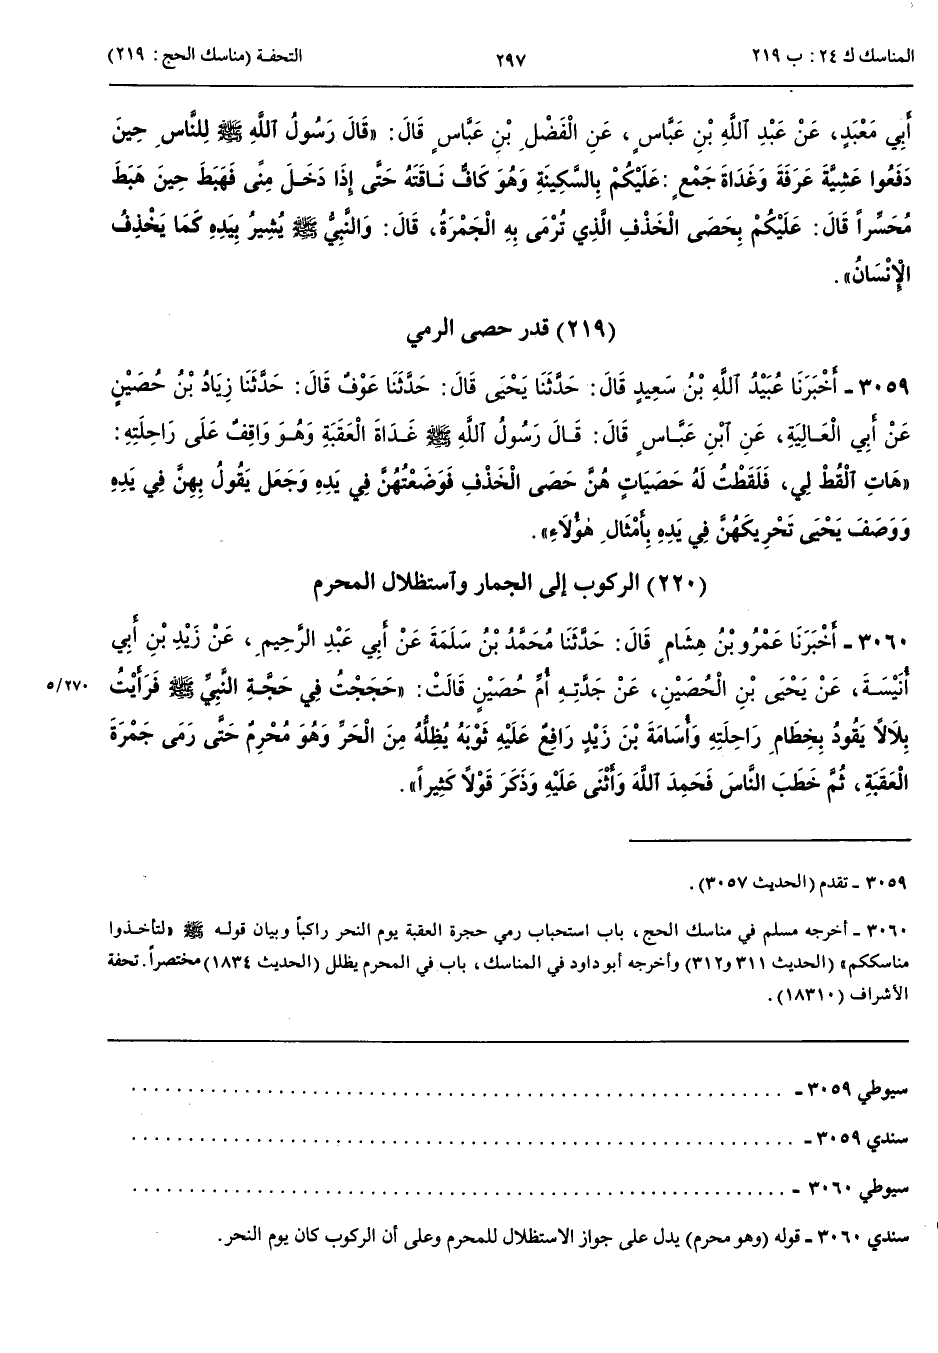 المناسك ك ٢٤: ب ٢١٩ ٢٩٧ التحفة (مناسك الحج: ٢١٩)
أَبِي مَعْبَدٍ، عَنْ عَبْدِ اللَّهِ بْنِ عَبَّاسٍ، عَنِ الْفَضْلِ بْنِ عَبَّاسٍ قَالَ: «قَالَ رَسُولُ اللَّهِ ﷺ لِلنَّاسِ حِينَ
دَفَعُوا عَشِيَّةَ عَرَفَةَ وَغَدَاةَ جَمْعٍ: عَلَيْكُمْ بِالسَّكِينَةِ وَهُوَ كَافٌّ نَاقَتَهُ حَتَّى إِذَا دَخَلَ مِنًى فَهَبَطَ حِينَ هَبَطَ
مُحَسِّراً قَالَ: عَلَيْكُمْ بِحَصَى الْخَذْفِ الَّذِي تُرْمَى بِهِ الْجَمْرَةُ، قَالَ: وَالنَّبِيُّ ﷺ يُشِيرُ بِيَدِهِ كَمَا يَخْذِفُ
الْإِنْسَانُ».
(٢١٩) قدر حصى الرمي
٣٠٥٩ - أَخْبَرَنَا عُبَيْدُ اللَّهِ بْنُ سَعِيدٍ قَالَ: حَدَّثَنَا يَحْيَى قَالَ: حَدَّثَنَا عَوْفٌ قَالَ: حَدَّثَنَا زِيَادُ بْنُ حُصَيْنٍ
عَنْ أَبِي الْعَالِيَةِ، عَنِ ٱبْنِ عَبَّاسٍ قَالَ: قَالَ رَسُولُ اللَّهِ ﷺ غَدَاةَ الْعَقَبَةِ وَهُوَ وَاقِفٌ عَلَى رَاحِلَتِهِ:
«هَاتِ ٱلْقُطْ لِي، فَلَقَطْتُ لَهُ حَصَيَاتٍ هُنَّ حَصَى الْخَذْفِ فَوَضَعْتُهُنَّ فِي يَدِهِ وَجَعَلَ يَقُولُ بِهِنَّ فِي يَدِهِ
وَوَصَفَ يَحْيَى تَحْرِيكَهُنَّ فِي يَدِهِ بِأَمْثَالِ هٰؤُلَاءِ».
(٢٢٠) الركوب إلى الجمار وٱستظلال المحرم
٣٠٦٠ - أَخْبَرَنَا عَمْرُو بْنُ هِشَامٍ قَالَ: حَدَّثَنَا مُحَمَّدُ بْنُ سَلَمَةَ عَنْ أَبِي عَبْدِ الرَّحِيمِ، عَنْ زَيْدِ بْنِ أَبِي
أُنَيْسَةَ، عَنْ يَحْيَى بْنِ الْحُصَيْنِ، عَنْ جَدَّتِهِ أُمِّ حُصَيْنٍ قَالَتْ: «حَجَجْتُ فِي حَجَّةِ النَّبِيِّ ﷺ فَرَأَيْتُ ٥/٢٧٠
بِلَالًا يَقُودُ بِخِطَامِ رَاحِلَتِهِ وَأُسَامَةَ بْنَ زَيْدٍ رَافِعٌ عَلَيْهِ ثَوْبَهُ يُظِلُّهُ مِنَ الْحَرِّ وَهُوَ مُحْرِمٌ حَتَّى رَمَى جَمْرَةَ
الْعَقَبَةِ، ثُمَّ خَطَبَ النَّاسَ فَحَمِدَ اللَّهَ وَأَثْنَى عَلَيْهِ وَذَكَرَ قَوْلًا كَثِيراً».
٣٠٥٩ - تقدم (الحديث ٣٠٥٧).
٣٠٦٠ - أخرجه مسلم في مناسك الحج، باب استحباب رمي حجرة العقبة يوم النحر راكباً وبيان قوله ﷺ «لتأخذوا
مناسككم» (الحديث ٣١١ و٣١٢) وأخرجه أبو داود في المناسك، باب في المحرم يظلل (الحديث ١٨٣٤) مختصراً. تحفة
الأشراف (١٨٣١٠).
سيوطي ٣٠٥٩ - ..........................................................
سندي ٣٠٥٩ - ..........................................................
سيوطي ٣٠٦٠ - ..........................................................
سندي ٣٠٦٠ - قوله (وهو محرم) يدل على جواز الاستظلال للمحرم وعلى أن الركوب كان يوم النحر.